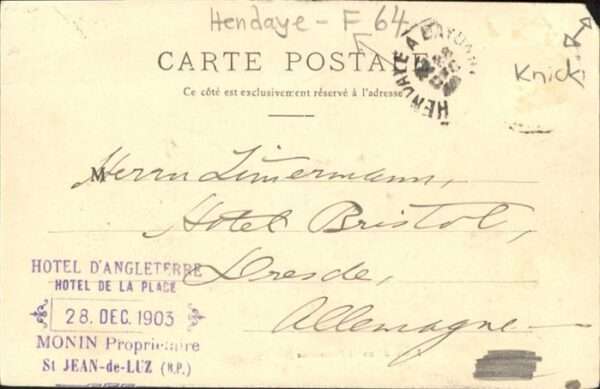 Hendaye - F 64
HENDAYE A BAYONNE
CARTE POSTALE
Ce côté est exclusivement réservé à l'adresse
Knick
Herrn Zimmermann,
Hotel Bristol,
Dresde,
Allemagne
HOTEL D'ANGLETERRE
HOTEL DE LA PLACE
28. DEC. 1903
MONIN Propriétaire
St JEAN-de-LUZ (B.P.)